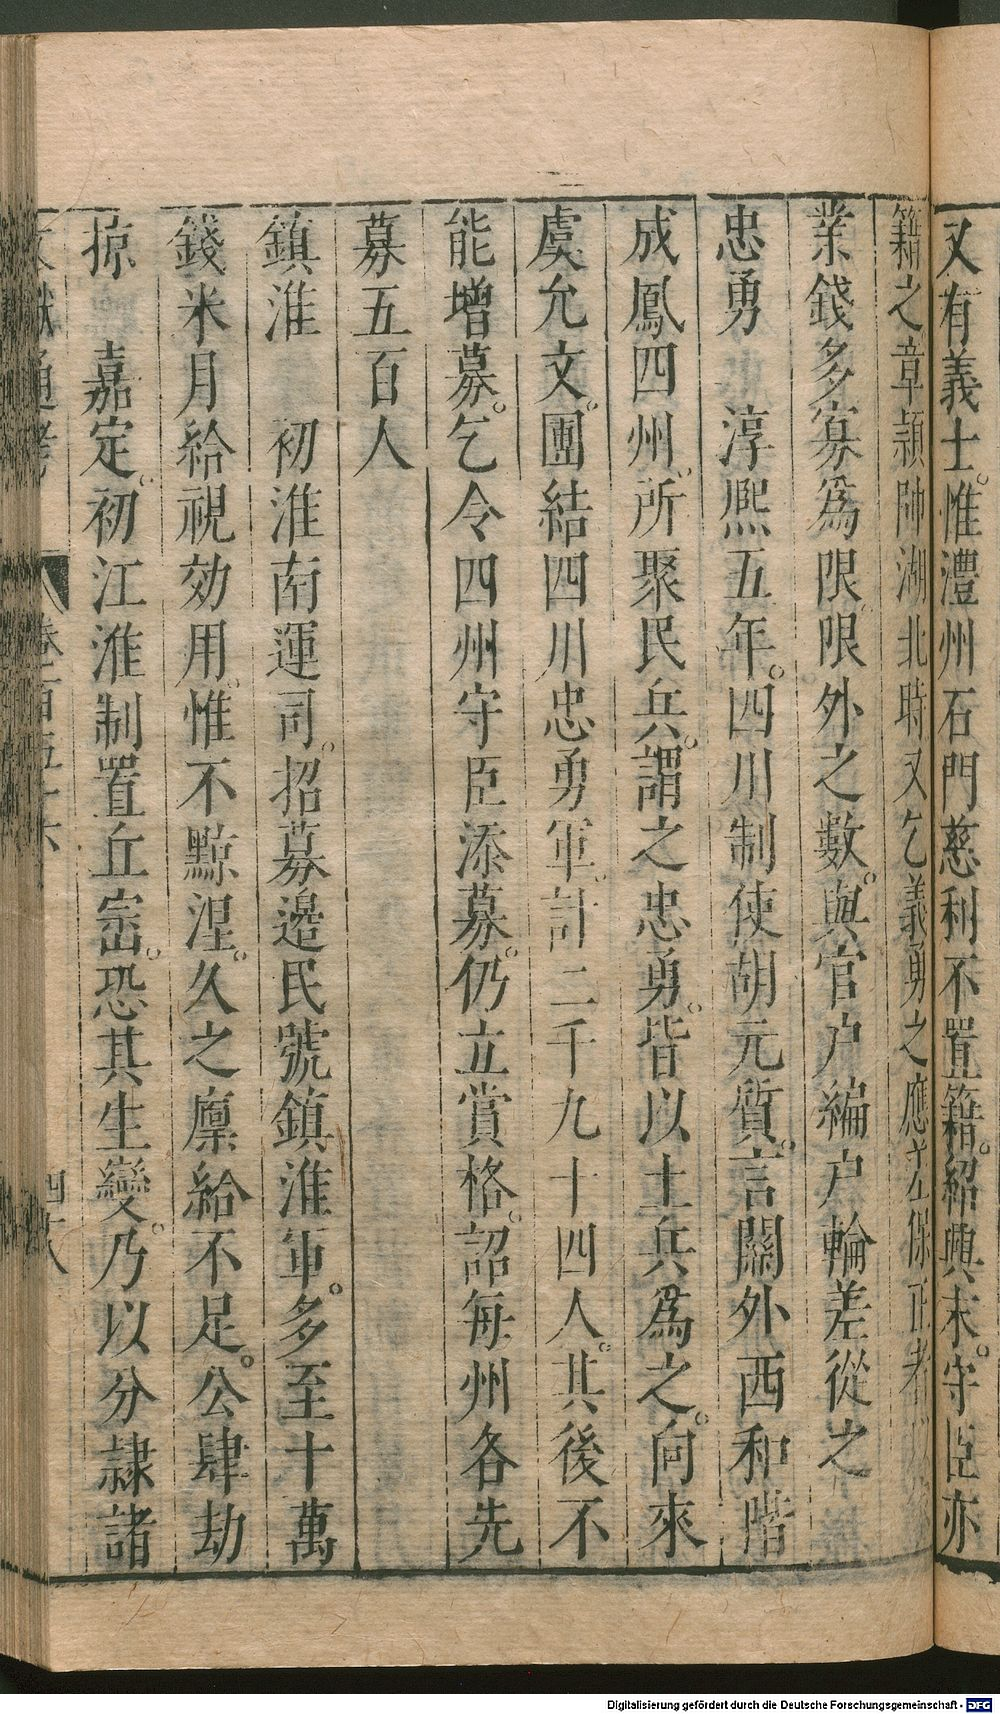 又有義士惟澧州石門慈利不置籍紹興末守臣亦
籍之章頴帥湖北時又乞義勇之應充保正者
業錢多寡爲限限外之數與官户編户輪差從之
忠勇　淳熈五年四川制使胡元質言關外西和階
成鳳四州所聚民兵謂之忠勇皆以土兵爲之向來
虞允文團結四川忠勇軍計二千九十四人其後不
能增募乞令四州守臣添募仍立賞格詔每州各先
募五百人
鎮淮　初淮南運司招募邊民號鎮淮軍多至十萬
錢米月給視効用惟不黥涅久之廪給不足公肆劫
掠　嘉定初江淮制置丘崈恐其生變乃以分隷諸
文獻通考　卷一百五十六　四十八
Digitalisierung gefördert durch die Deutsche Forschungsgemeinschaft - DFG